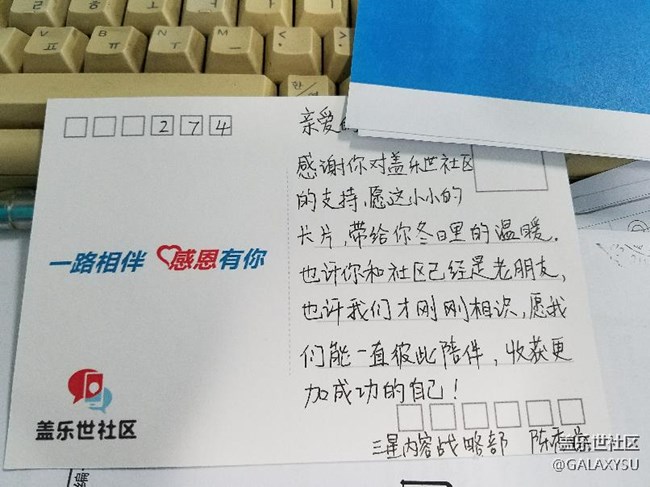 V
B
N
M
<
>
ㅍ
ㅠ
ㅜ
ㅡ
한
2 7 4
亲爱
感谢你对盖乐世社区
的支持,愿这小小的
卡片,带给你冬日里的温暖.
也许你和社区已经是老朋友,
也许我们才刚刚相识,愿我
们能一直彼此陪伴,收获更
加成功的自己!
一路相伴 感恩有你
盖乐世社区
三星内容战略部 陈
编
盖乐世社区
@GALAXYSU